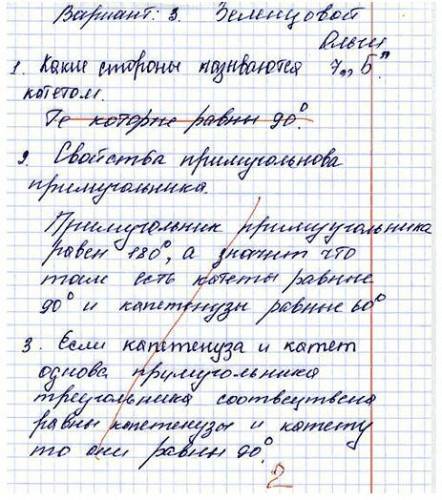 Вариант: 3. Зеленцовой
Ольги
1. Какие стороны називаются 7„Б"
катетом.
Те которие равни 90°.
2. Свойства примуголънова
примуголъника.
Примуголъник примуугольника
равен 180°, а значит что
там есть катеты равные
90° и капетенузы равные 60°
3. Если капетенуза и катет
однова примуголъника
треугольника соотвецтвена
равны капетенузы и катету
то они равны 90°.
2